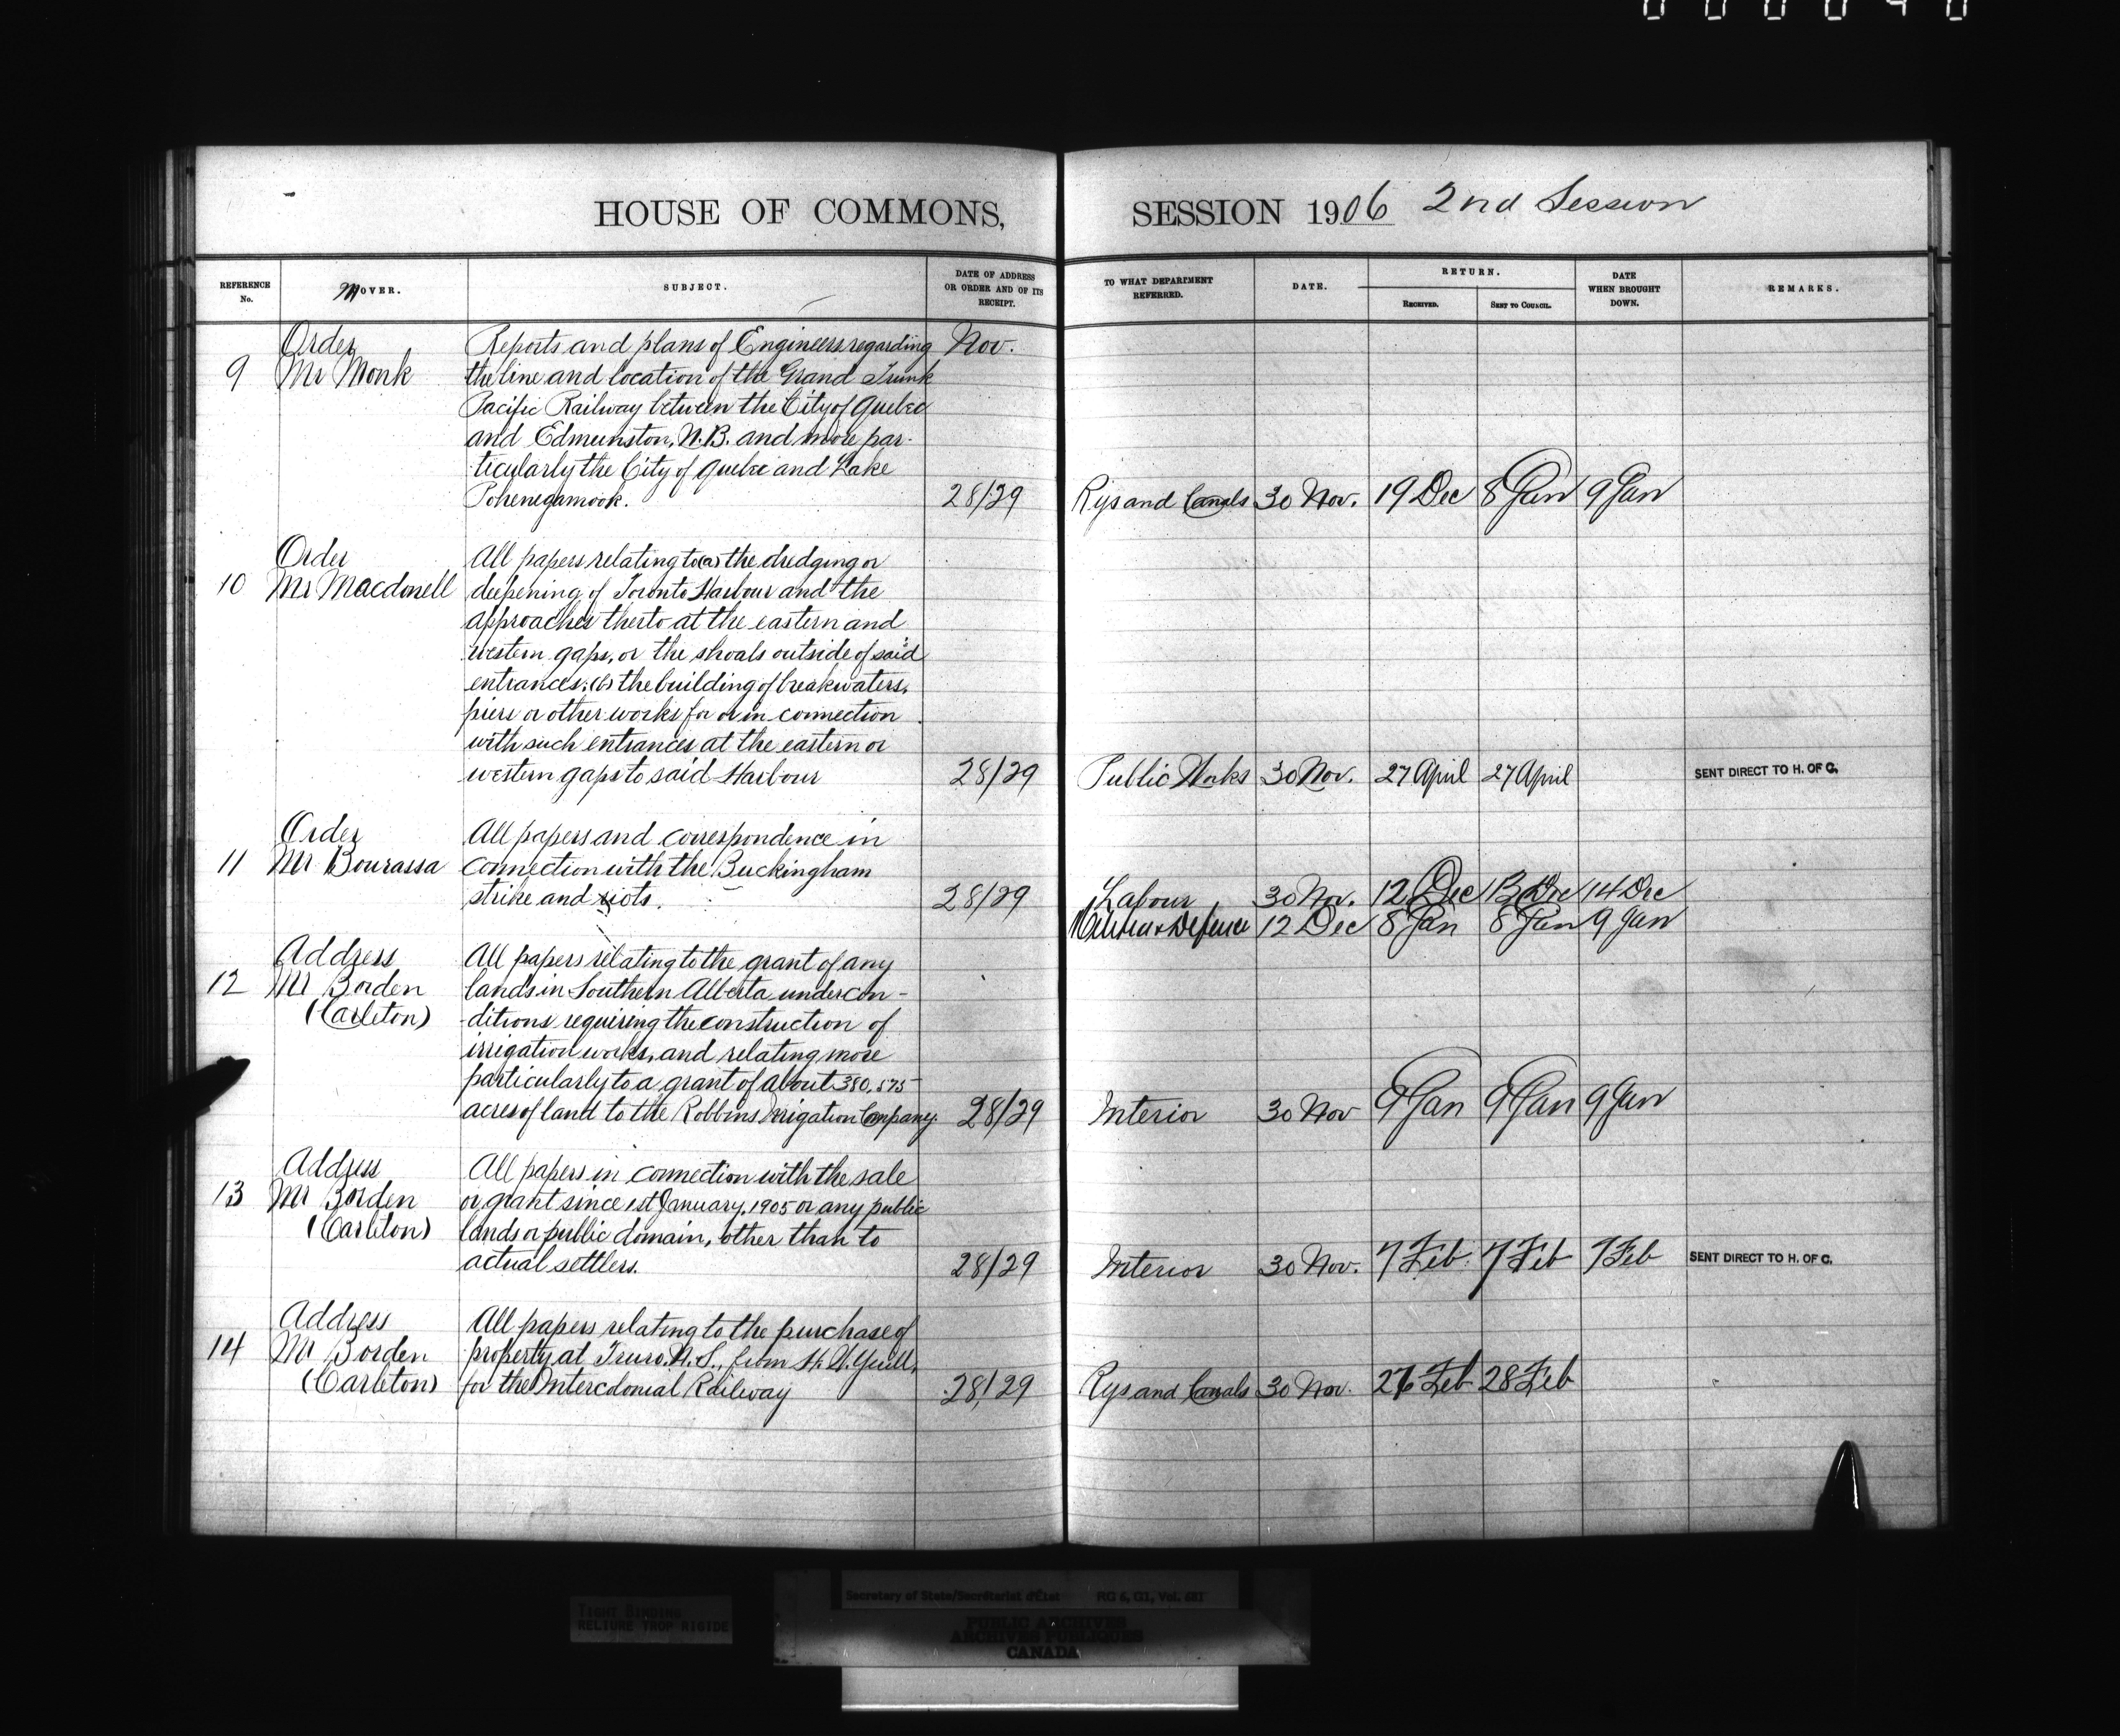 HOUSE OF COMMONS,
SESSION 1906 2nd Session
REFERENCE No.
MOVER.
SUBJECT.
DATE OF ADDRESS OR ORDER AND OF ITS RECEIPT.
TO WHAT DEPARTMENT REFERRED.
DATE.
RETURN.
RECEIVED.
SENT TO COUNCIL.
DATE WHEN BROUGHT DOWN.
REMARKS.
Order Reports and plans of Engineers regarding Nov.
9 Mr Monk the line and location of the Grand Trunk
Pacific Railway between the City of Quebec
and Edmunston, N.B. and more par-
ticularly the City of Quebec and Lake
Pohenegamook. 28/29 Rys and Canals 30 Nov. 19 Dec 8 Jan 9 Jan
Order All papers relating to (a) the dredging or
10 Mr Macdonell deepening of Toronto Harbour and the
approaches therto at the eastern and
western gaps, or the shoals outside of said
entrances; (b) the building of breakwaters,
piers or other works for or in connection
with such entrances at the eastern or
western gaps to said Harbour 28/29 Public Works 30 Nov. 27 April 27 April SENT DIRECT TO H. OF C.
Order All papers and correspondence in
11 Mr Bourassa connection with the Buckingham
strike and riots. 28/29 Labour 30 Nov. 12 Dec 13 Dec 14 Dec
Militia & Defence 12 Dec 8 Jan 8 Jan 9 Jan
Address All papers relating to the grant of any
12 Mr Borden lands in Southern Alberta under con-
(Carleton) ditions requiring the construction of
irrigation works, and relating more
particularly to a grant of about 380,575
acres of land to the Robbins Irrigation Company. 28/29 Interior 30 Nov 9 Jan 9 Jan 9 Jan
Address All papers in connection with the sale
13 Mr Borden or grant since 1st January, 1905 or any public
(Carleton) lands or public domain, other than to
actual settlers. 28/29 Interior 30 Nov. 7 Feb. 7 Feb 7 Feb SENT DIRECT TO H. OF C.
Address All papers relating to the purchase of
14 Mr Borden property at Truro, N.S., from
(Carleton) for the Intercolonial Railway 28/29 Rys and Canals 30 Nov. Feb 28 Feb
Secretary of State/Secrétariat d'État RG 6, G1, Vol. 681
TIGHT BINDING
RELIURE TROP RIGIDE
PUBLIC ARCHIVES
ARCHIVES PUBLIQUES
CANADA